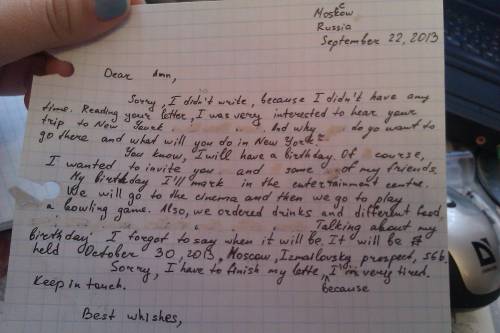 Moskow c
Russia
September 22, 2013
Dear Ann,
Sorry, I didn't write, because I didn't have any
time. Reading your letter, I was very interected to hear your
trip to New York. And why do go want to
go there and what will you do in New York?
You know, I will have a birthday. Of course,
I wanted to invite you and some of my friends.
My birthday I'll mark in the entertainment centre.
We will go to the cinema and then we go to play
a bowling game. Also, we ordered drinks and different food.
Talking about my
birthday, I forgot to say when it will be. It will be
held October 30, 2013, Moscow, Izmailovsky prospect, 566.
Sorry, I have to finish my lette, I'm very tired.
Keep in touch. because
Best whishes,